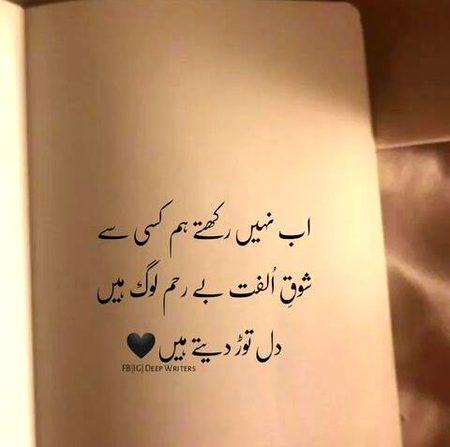 اب نہیں رکھتے ہم کسی سے
شوقِ اُلفت بے رحم لوگ ہیں
دل توڑ دیتے ہیں🖤
FB|IG| Deep Writers